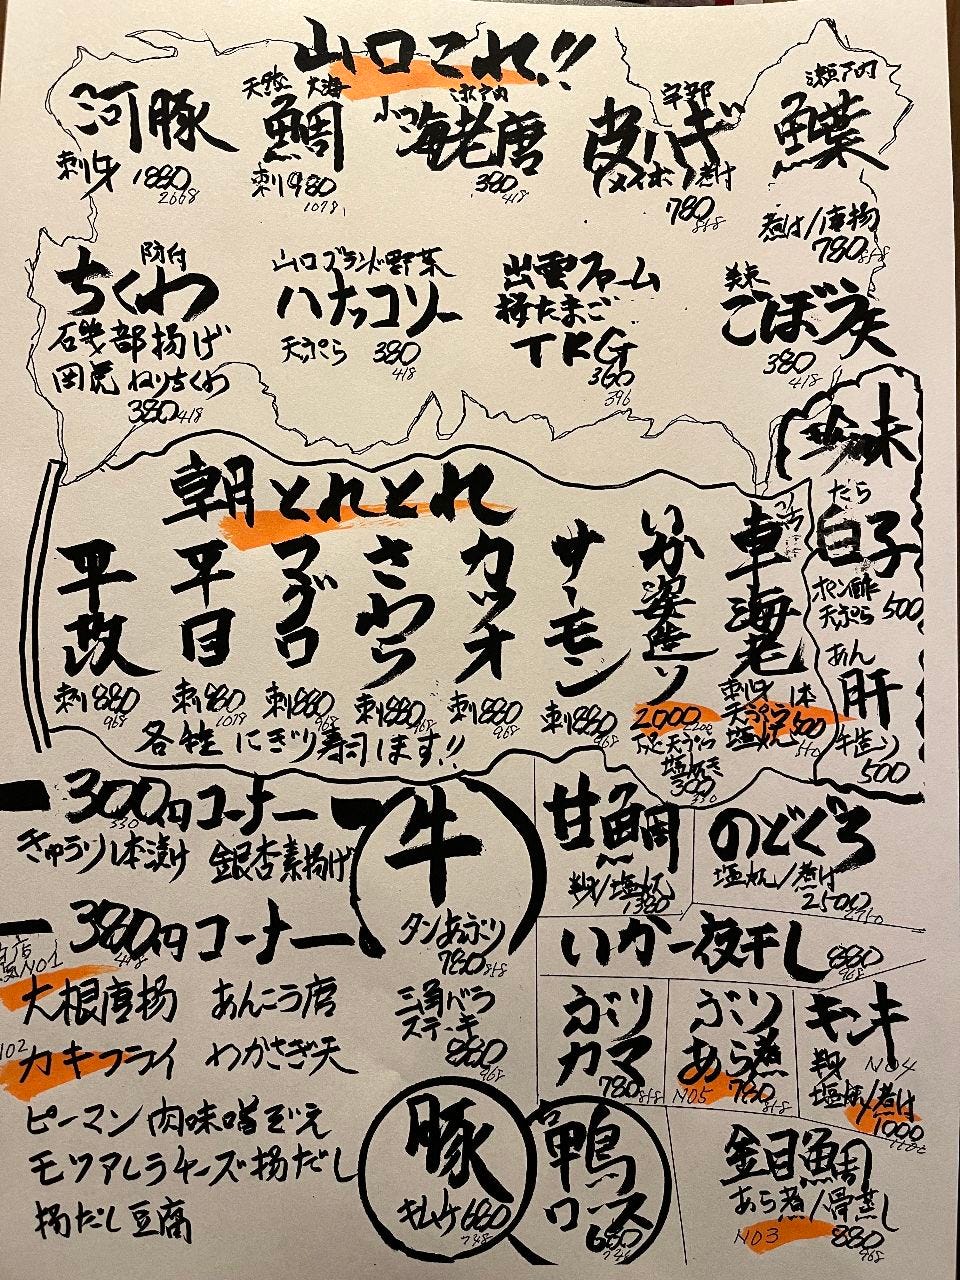 山口これ!!
河豚
刺身 1880
2068
天然 大海
鯛
刺980
1078
瀬戸内
小つ海老唐
380
418
宇部
皮ハギ
メイボ 煮付
780
858
瀬戸内
鰈
煮付/唐揚
780
858
防府
ちくわ
磯部揚げ
岡虎 ねりちくわ
380 418
山口ブランド野菜
ハナッコリー
天ぷら 380
418
出雲ファーム
極たまご
TKG
360
396
美東
ごぼう天
380
418
朝とれとれ
平政
刺880
968
平目
刺980
1078
マグロ
刺880
968
さわら
刺880
968
カツオ
刺880
968
サーモン
刺880
968
いか姿造り
2000
2200
天ぷら
塩焼き
300
330
車海老
刺身 1本
天ぷら 500
塩焼 550
各種 にぎり寿司します!!
珍味
たら
白子
ポン酢
天ぷら 500
あん
肝
500
300円コーナー
330
きゅうり1本漬け 銀杏素揚げ
380円コーナー
418
NO1
大根唐揚 あんこう唐
NO2
カキフライ わかさぎ天
ピーマン肉味噌ぞえ
モツアレラチーズ揚だし
揚だし豆腐
牛
タンあぶり
780 858
三角バラ
ステーキ
880
968
豚
キムチ680
748
鴨
ロース
680
748
甘鯛
刺身/塩焼
1380
のどぐろ
塩焼/煮付
2500
2750
いか一夜干し 880
968
ぶり
カマ
780 858
ぶり
あら煮
NO5 780
858
キンキ
刺身 NO4
塩焼/煮付
1000
1100
金目鯛
あら煮/骨蒸し
NO3 880
968